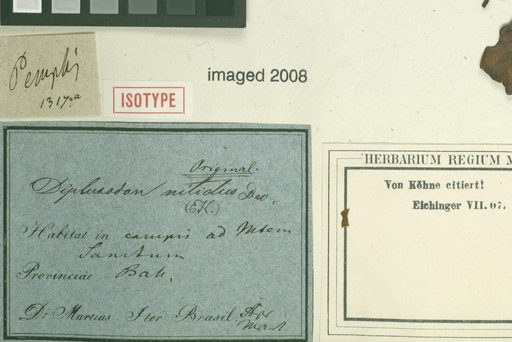 Pemphis
1317a
ISOTYPE
imaged 2008
Original.
Diplusodon nitidus Dec.
(E.K.)
Habitat in campis ad Mtem
Sanctum
Provinciae Bah.
Dr Martius Iter Brasil.
HERBARIUM REGIUM M
Von Köhne citiert!
Eichinger VII.07.